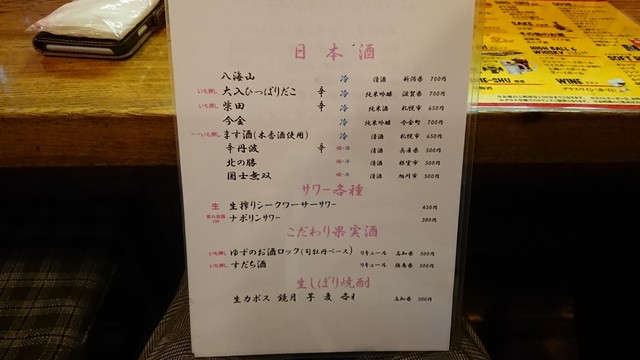 日本酒
八海山 冷 清酒 新潟県 700円
いち押し 大入ひっぱりだこ 辛 冷 純米吟醸 滋賀県 700円
いち押し 柴田 辛 冷 純米酒 札幌市 650円
今金 冷 純米吟醸 今金町 700円
いち押し ます酒(本香酒使用) 冷 清酒 札幌市 650円
辛丹波 辛 清酒 兵庫県 500円
北の勝 清酒 根室市 500円
国士無双 清酒 旭川市 500円
サワー各種
生 生搾りシークワーサーサワー 450円
ナポリンサワー 380円
こだわり果実酒
いち押し ゆずのお酒ロック(司牡丹ベース) リキュール 高知県 500円
いち押し すだち酒 リキュール 徳島県 500円
生しぼり焼酎
生カボス 鏡月 芋 麦 各種 高知県 500円
SAKE
HIGH BALL & WHISKY
SOFT
WINE